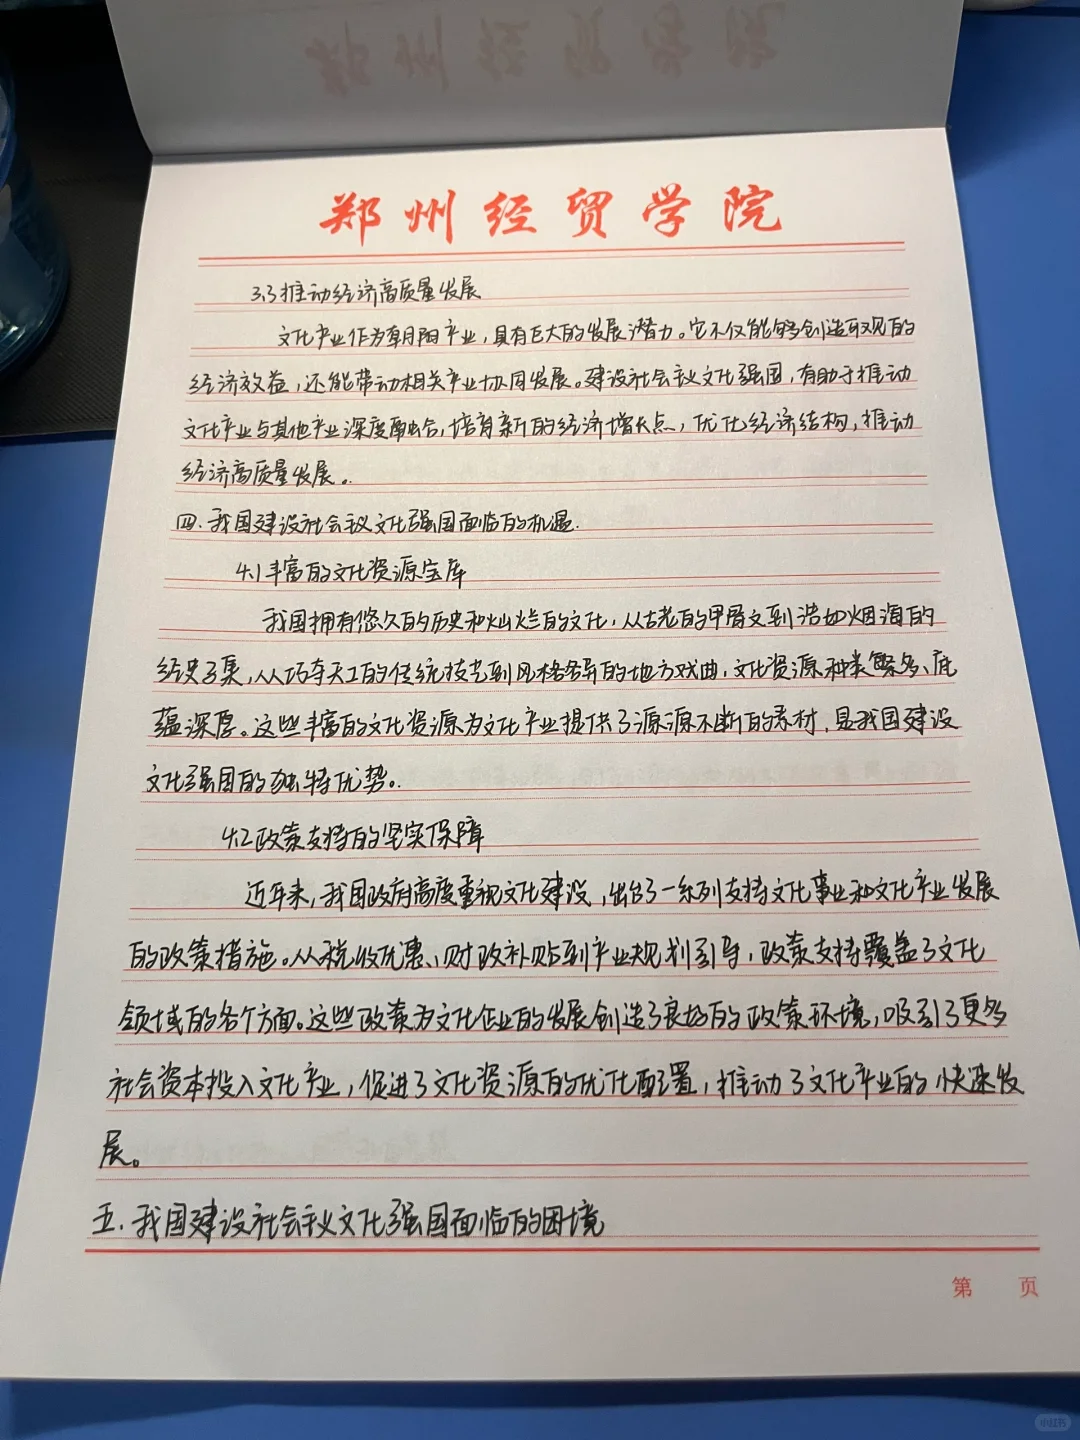 郑州经贸学院
3.3推动经济高质量发展
文化产业作为朝阳产业，具有巨大的发展潜力。它不仅能够创造可观的
经济效益，还能带动相关产业协同发展。建设社会主义文化强国，有助于推动
文化产业与其他产业深度融合，培育新的经济增长点，优化经济结构，推动
经济高质量发展。
四.我国建设社会主义文化强国面临的机遇.
4.1丰富的文化资源宝库
我国拥有悠久的历史和灿烂的文化，从古老的甲骨文到浩如烟海的
经史子集，从巧夺天工的传统技艺到风格各异的地方戏曲，文化资源种类繁多、底
蕴深厚。这些丰富的文化资源为文化产业提供了源源不断的素材，是我国建设
文化强国的独特优势。
4.2政策支持的坚实保障
近年来，我国政府高度重视文化建设，出台了一系列支持文化事业和文化产业发展
的政策措施。从税收优惠、财政补贴到产业规划引导，政策支持覆盖了文化
领域的各个方面。这些政策为文化企业的发展创造了良好的政策环境，吸引了更多
社会资本投入文化产业，促进了文化资源的优化配置，推动了文化产业的快速发
展。
五.我国建设社会主义文化强国面临的困境
第 页
小红书